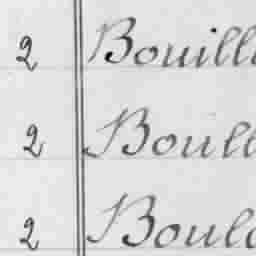 2 Bouill
2 Boull
2 Boul